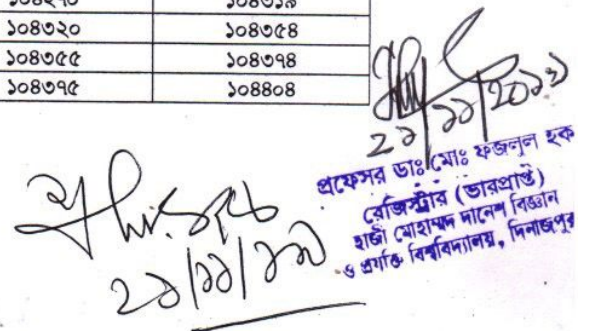 ১০৪২৭০ ১০৪৩১৯
১০৪৩২০ ১০৪৩৫৪
১০৪৩৫৫ ১০৪৩৭৪
১০৪৩৭৫ ১০৪৪০৪
২১/১১/২০১৯
প্রফেসর ডাঃ মোঃ ফজলুল হক
রেজিস্ট্রার (ভারপ্রাপ্ত)
হাজী মোহাম্মদ দানেশ বিজ্ঞান
ও প্রযুক্তি বিশ্ববিদ্যালয়, দিনাজপুর
২১/১১/১৯